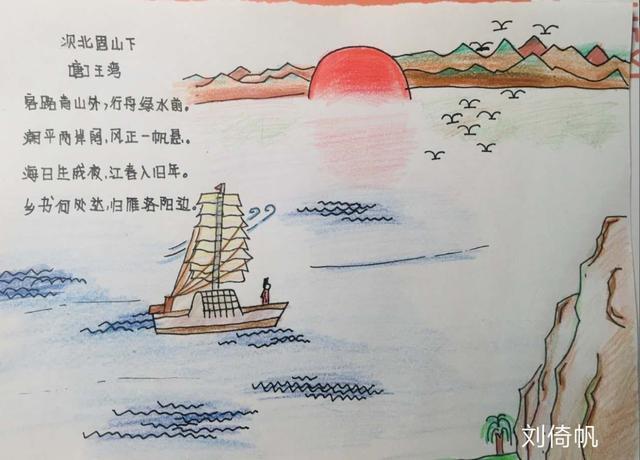 次北固山下
[唐]王湾
客路青山外,行舟绿水前。
潮平两岸阔,风正一帆悬。
海日生残夜,江春入旧年。
乡书何处达,归雁洛阳边。
刘倚帆